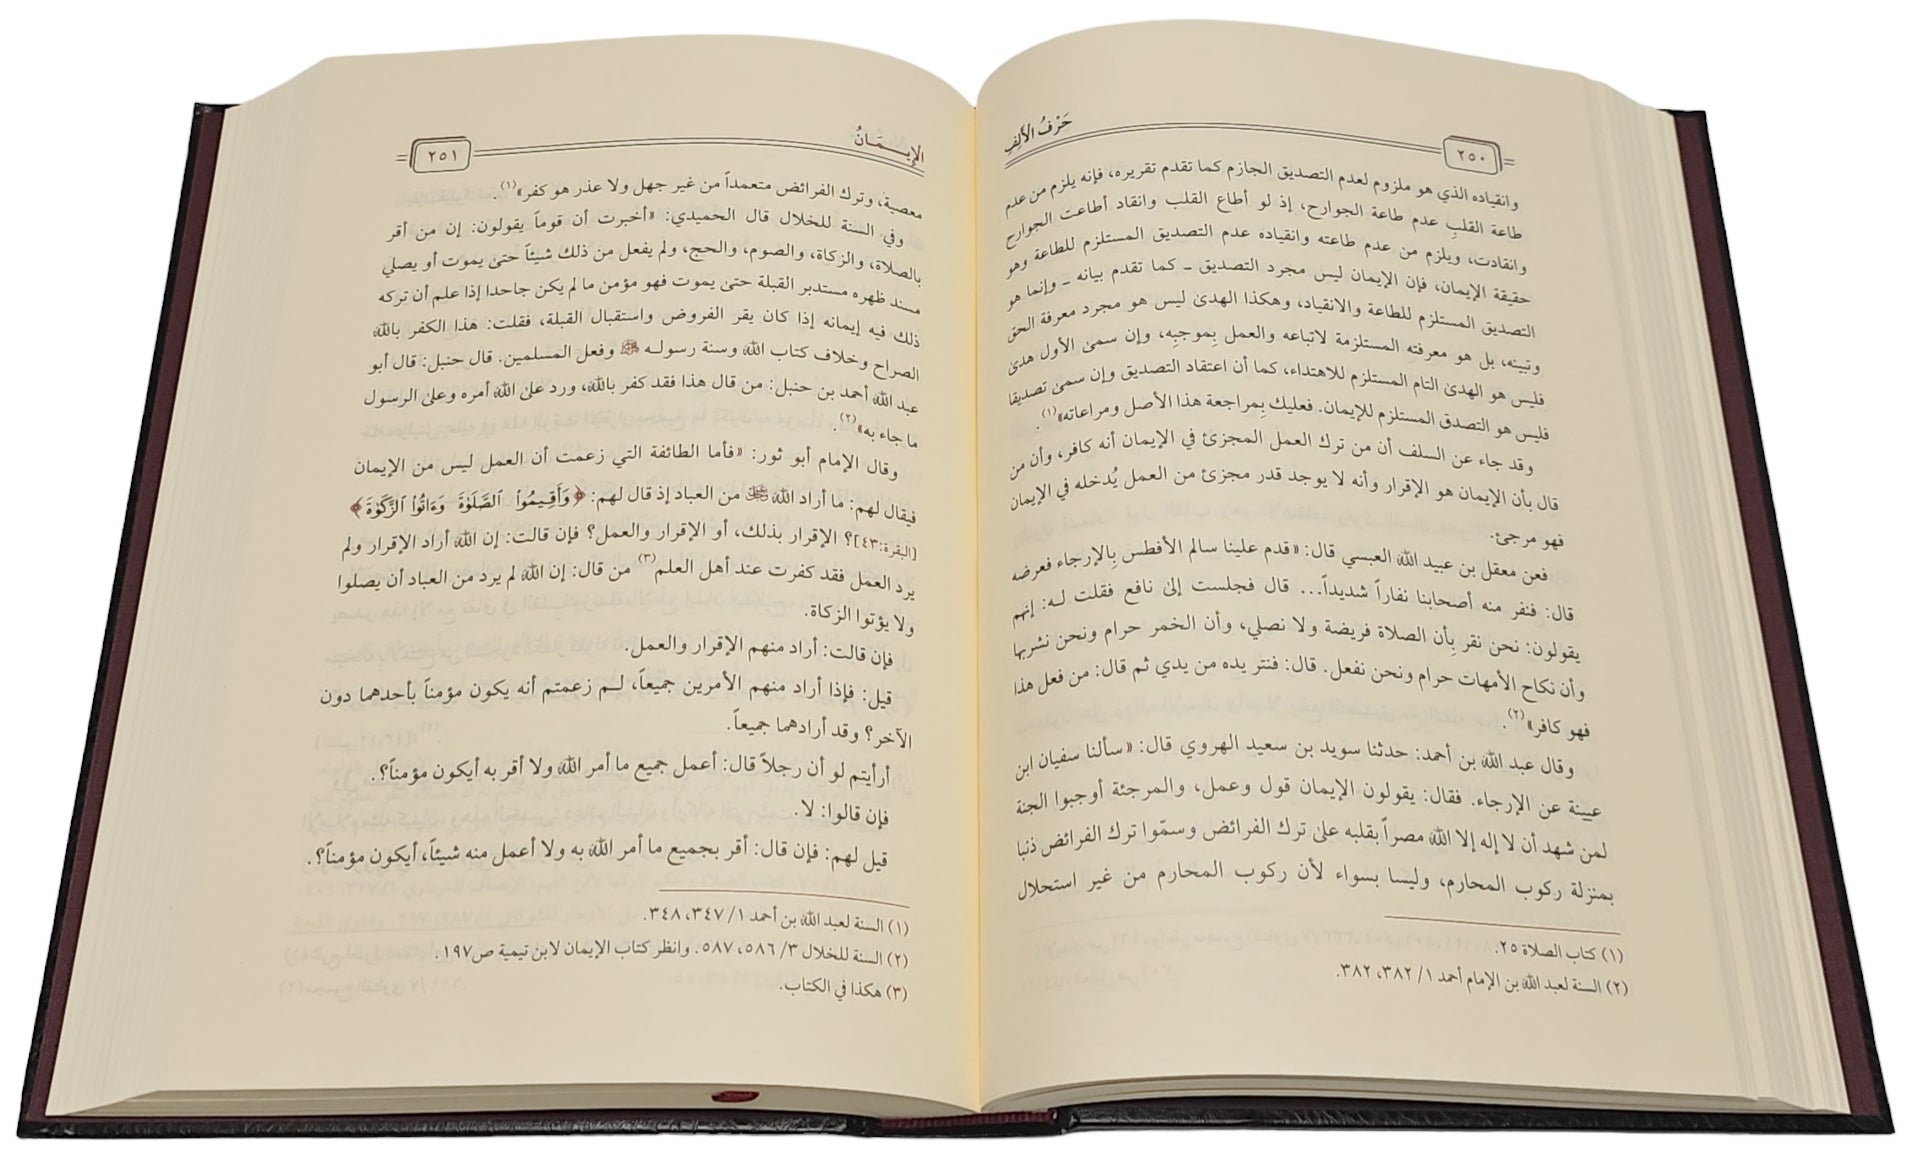 حَرْفُ الأَلِفِ
٢٥٠
وانقياده الذي هو ملزوم لعدم التصديق الجازم كما تقدم تقريره، فإنه يلزم من عدم
طاعة القلبِ عدم طاعة الجوارح، إذ لو أطاع القلب وانقاد أطاعت الجوارح
وانقادت، ويلزم من عدم طاعته وانقياده عدم التصديق المستلزم للطاعة وهو
حقيقة الإيمان، فإن الإيمان ليس مجرد التصديق ـ كما تقدم بيانه ـ وإنما هو
التصديق المستلزم للطاعة والانقياد، وهكذا الهدىٰ ليس هو مجرد معرفة الحق
وتبينه، بل هو معرفته المستلزمة لاتباعه والعمل بِموجبِه، وإن سمىٰ الأول هدىٰ
فليس هو الهدىٰ التام المستلزم للاهتداء، كما أن اعتقاد التصديق وإن سمىٰ تصديقا
فليس هو التصدق المستلزم للإيمان. فعليك بِمراجعة هذا الأصل ومراعاته»(١).
وقد جاء عن السلف أن من ترك العمل المجزئ في الإيمان أنه كافر، وأن من
قال بأن الإيمان هو الإقرار وأنه لا يوجد قدر مجزئ من العمل يُدخله في الإيمان
فهو مرجئ.
فعن معقل بن عبيد الله العبسي قال: «قدم علينا سالم الأفطس بِالإرجاء فعرضه
قال: فنفر منه أصحابنا نفاراً شديداً... قال فجلست إلىٰ نافع فقلت لـه: إنهم
يقولون: نحن نقر بِأن الصلاة فريضة ولا نصلي، وأن الخمر حرام ونحن نشربها
وأن نكاح الأمهات حرام ونحن نفعل. قال: فنتر يده من يدي ثم قال: من فعل هذا
فهو كافر»(٢).
وقال عبد الله بن أحمد: حدثنا سويد بن سعيد الهروي قال: «سألنا سفيان ابن
عيينة عن الإرجاء. فقال: يقولون الإيمان قول وعمل، والمرجئة أوجبوا الجنة
لمن شهد أن لا إله إلا الله مصراً بقلبه علىٰ ترك الفرائض وسمّوا ترك الفرائض ذنبا
بمنزلة ركوب المحارم، وليسا بسواء لأن ركوب المحارم من غير استحلال
(١) كتاب الصلاة ٢٥.
(٢) السنة لعبد الله بن الإمام أحمد ١/ ٣٨٢، ٣٨٢.
الإيـمَـانُ
٢٥١
معصية، وترك الفرائض متعمداً من غير جهل ولا عذر هو كفر»(١).
وفي السنة للخلال قال الحميدي: «أخبرت أن قوماً يقولون: إن من أقر
بالصلاة، والزكاة، والصوم، والحج، ولم يفعل من ذلك شيئاً حتىٰ يموت أو يصلي
مسند ظهره مستدبر القبلة حتىٰ يموت فهو مؤمن ما لم يكن جاحدا إذا علم أن تركه
ذلك فيه إيمانه إذا كان يقر الفروض واستقبال القبلة، فقلت: هذا الكفر بالله
الصراح وخلاف كتاب الله وسنة رسولـه ﷺ وفعل المسلمين. قال حنبل: قال أبو
عبد الله أحمد بن حنبل: من قال هذا فقد كفر بالله، ورد علىٰ الله أمره وعلىٰ الرسول
ما جاء به»(٢).
وقال الإمام أبو ثور: «فأما الطائفة التي زعمت أن العمل ليس من الإيمان
فيقال لهم: ما أراد الله ﷻ من العباد إذ قال لهم: ﴿وَأَقِيمُوا۟ ٱلصَّلَوٰةَ وَءَاتُوا۟ ٱلزَّكَوٰةَ﴾
[البقرة:٤٣]؟ الإقرار بذلك، أو الإقرار والعمل؟ فإن قالت: إن الله أراد الإقرار ولم
يرد العمل فقد كفرت عند أهل العلم(٣) من قال: إن الله لم يرد من العباد أن يصلوا
ولا يؤتوا الزكاة.
فإن قالت: أراد منهم الإقرار والعمل.
قيل: فإذا أراد منهم الأمرين جميعاً، لـم زعمتم أنه يكون مؤمناً بأحدهما دون
الآخر؟ وقد أرادهما جميعاً.
أرأيتم لو أن رجلاً قال: أعمل جميع ما أمر الله ولا أقر به أيكون مؤمناً؟.
فإن قالوا: لا.
قيل لهم: فإن قال: أقر بجميع ما أمر الله به ولا أعمل منه شيئاً، أيكون مؤمناً؟.
(١) السنة لعبد الله بن أحمد ١/ ٣٤٧، ٣٤٨.
(٢) السنة للخلال ٣/ ٥٨٦، ٥٨٧. وانظر كتاب الإيمان لابن تيمية ص١٩٧.
(٣) هكذا في الكتاب.